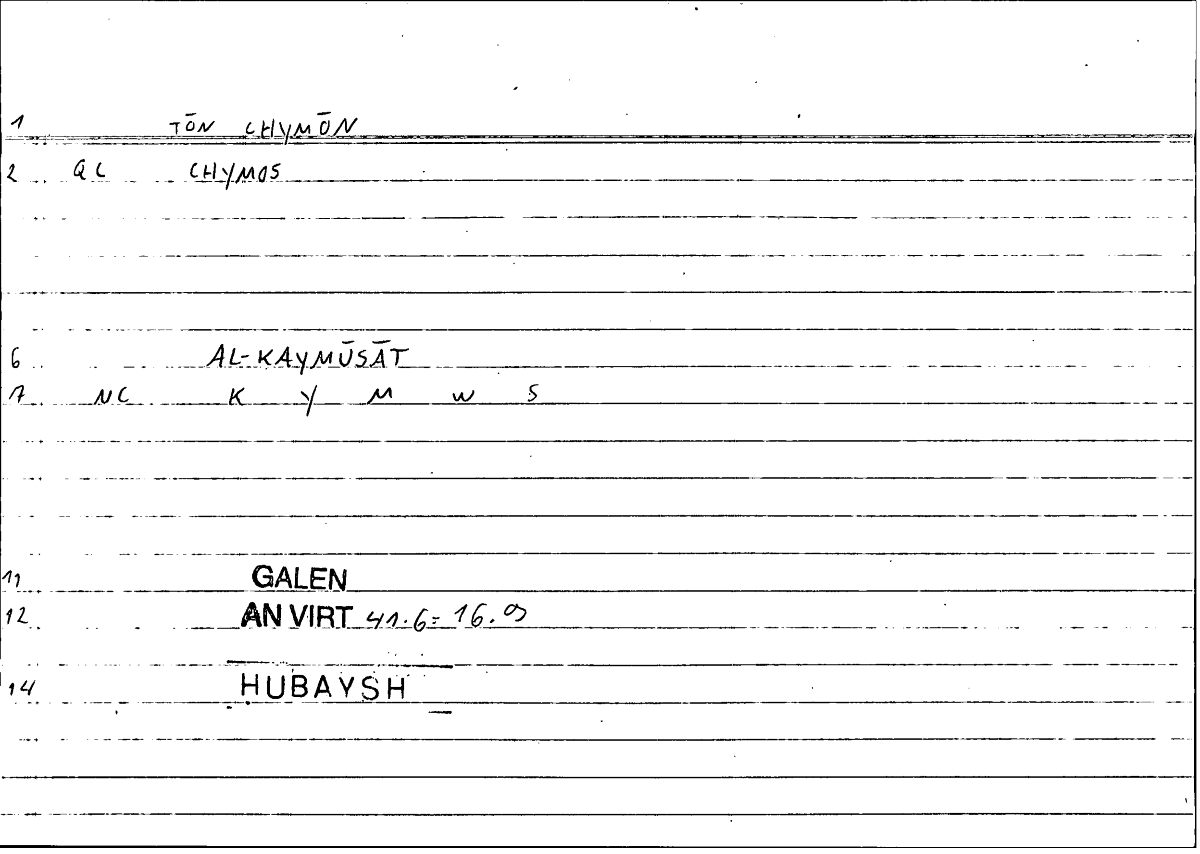 1 TŌN CHYMŌN
2 QC CHYMOS
6 AL-KAYMŪSĀT
7 NC K Y M W S
11 GALEN
12 AN VIRT 41.6= 16.9
14 HUBAYSH